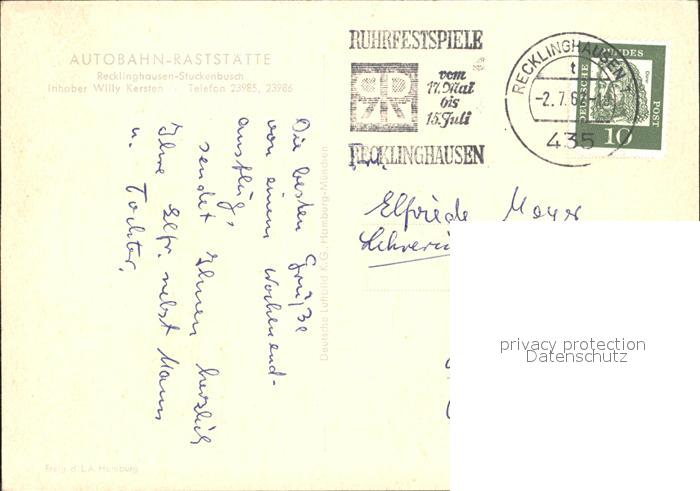 AUTOBAHN-RASTSTÄTTE
Recklinghausen-Stuckenbusch
Inhaber Willy Kersten · Telefon 23985, 23986
RUHRFESTSPIELE
vom
17. Mai
bis
15. Juli
RECKLINGHAUSEN
RECKLINGHAUSEN 1
t
-2.7.6
435
DEUTSCHE BUNDESPOST
Dürer
10
Die besten Grüße
von einem Wochenend-
ausflug,
sendet Ihnen herzlich
Ihre Elfr. nebst Mann
u. Tochter.
Deutsche Luftbild K.G. Hamburg-München
Elfriede Mayer
Freig. d. L.A. Hamburg
privacy protection
Datenschutz